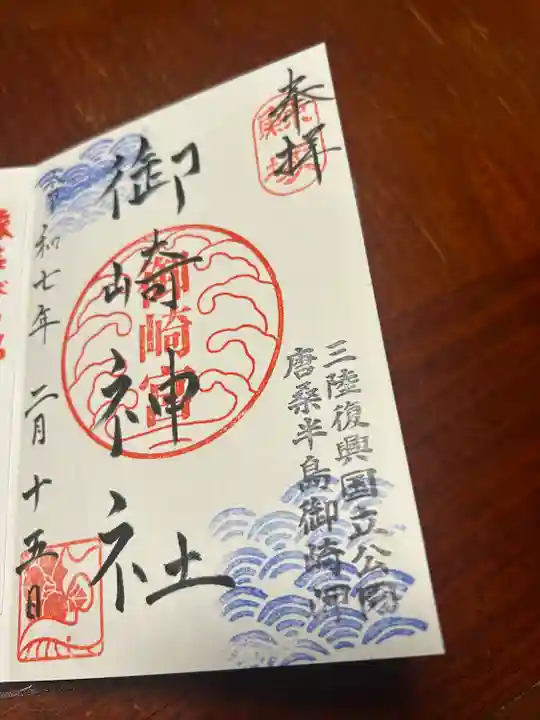 奉拝
三陸復興国立公園
唐桑半島御崎岬
御崎神社
御崎宮
令和七年 二月十五日